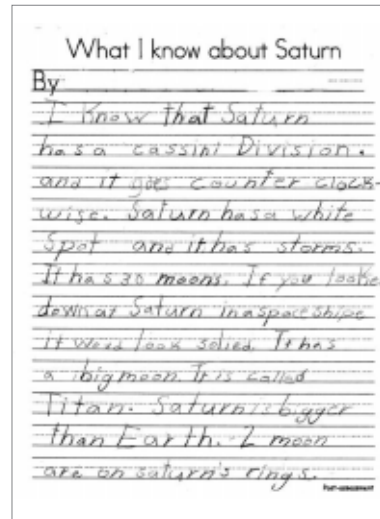 What I know about Saturn
By
I Know that Saturn
has a cassini Division.
and it goes counter clock-
wise. Saturn has a white
Spot and it has storms.
It has 30 moons. If you looke
down at Saturn in a space shipe
it woud look solied. It has
a big moon. It is called
Titan. Saturn is bigger
than Earth. 2 moon
are on saturn's rings.
Post-assessment